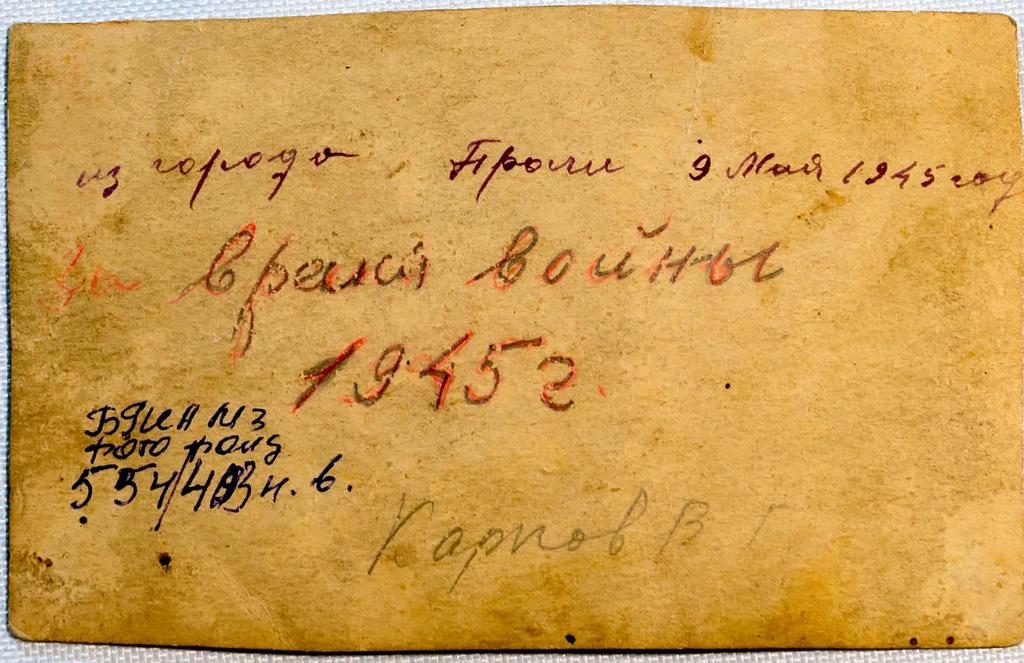 из города Праги 9 Мая 1945 год
За время войны
1945 г.
фото фонд
554/403 н. в.
Карпов В Г